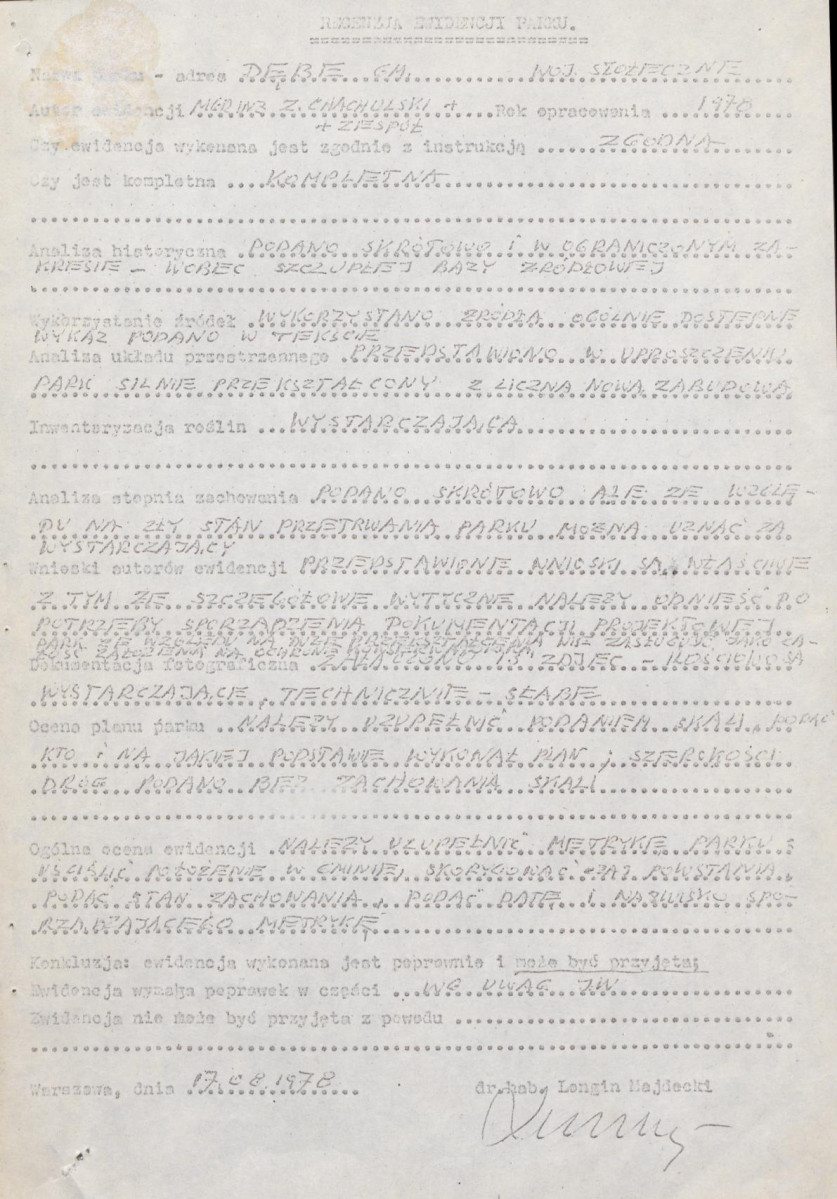 RECENZJA EWIDENCJI PARKU.
Nazwa parku - adres DĘBE GM. WOJ. STOŁECZNE
Autor ewidencji MGR INŻ Z. CHACHULSKI + Rok opracowania 1978
+ ZESPÓŁ
Czy ewidencja wykonana jest zgodnie z instrukcją ZGODNA
Czy jest kompletna KOMPLETNA
Analiza historyczna PODANO SKRÓTOWO I W OGRANICZONYM ZA-
KRESIE - WOBEC SZCZUPŁEJ BAZY ŹRÓDŁOWEJ
Wykorzystanie źródeł WYKORZYSTANO ŹRÓDŁA OGÓLNIE DOSTĘPNE
WYKAZ PODANO W TEKŚCIE
Analiza układu przestrzennego PRZEDSTAWIONO W UPROSZCZENIU
PARK SILNIE PRZEKSZTAŁCONY Z LICZNĄ NOWĄ ZABUDOWĄ
Inwentaryzacja roślin WYSTARCZAJĄCA
Analiza stopnia zachowania PODANO SKRÓTOWO ALE ZE WZGLĘ-
DU NA ZŁY STAN PRZETRWANIA PARKU MOŻNA UZNAĆ ZA
WYSTARCZAJĄCY
Wnioski autorów ewidencji PRZEDSTAWIONE WNIOSKI SĄ WŁAŚCIWE
Z TYM ŻE SZCZEGÓŁOWE WYTYCZNE NALEŻY ODNIEŚĆ DO
POTRZEBY SPORZĄDZENIA DOKUMENTACJI PROJEKTOWEJ
PARK ZE WZGLĘDU NA DUŻE PRZEKSZTAŁCENIA NIE ZASŁUGUJE JAKO CA-
ŁOŚĆ ZAŁOŻENIA NA OCHRONĘ
Dokumentacja fotograficzna ZAŁĄCZONO 13 ZDJĘĆ - ILOŚCIOWO
WYSTARCZAJĄCE, TECHNICZNIE - SŁABE
Ocena planu parku NALEŻY UZUPEŁNIĆ PODANIEM SKALI, PODAĆ
KTO I NA JAKIEJ PODSTAWIE WYKONAŁ PLAN; SZEROKOŚCI
DRÓG PODANO BEZ ZACHOWANIA SKALI
Ogólna ocena ewidencji NALEŻY UZUPEŁNIĆ METRYKĘ PARKU:
UŚCIŚLIĆ POŁOŻENIE W GMINIE, SKORYGOWAĆ CZAS POWSTANIA,
PODAĆ STAN ZACHOWANIA, PODAĆ DATĘ I NAZWISKO SPO-
RZĄDZAJĄCEGO METRYKĘ
Konkluzja: ewidencja wykonana jest poprawnie i może być przyjęta;
Ewidencja wymaga poprawek w części WG UWAG JW
Ewidencja nie może być przyjęta z powodu
Warszawa, dnia 17.08.1978 dr hab. Longin Majdecki